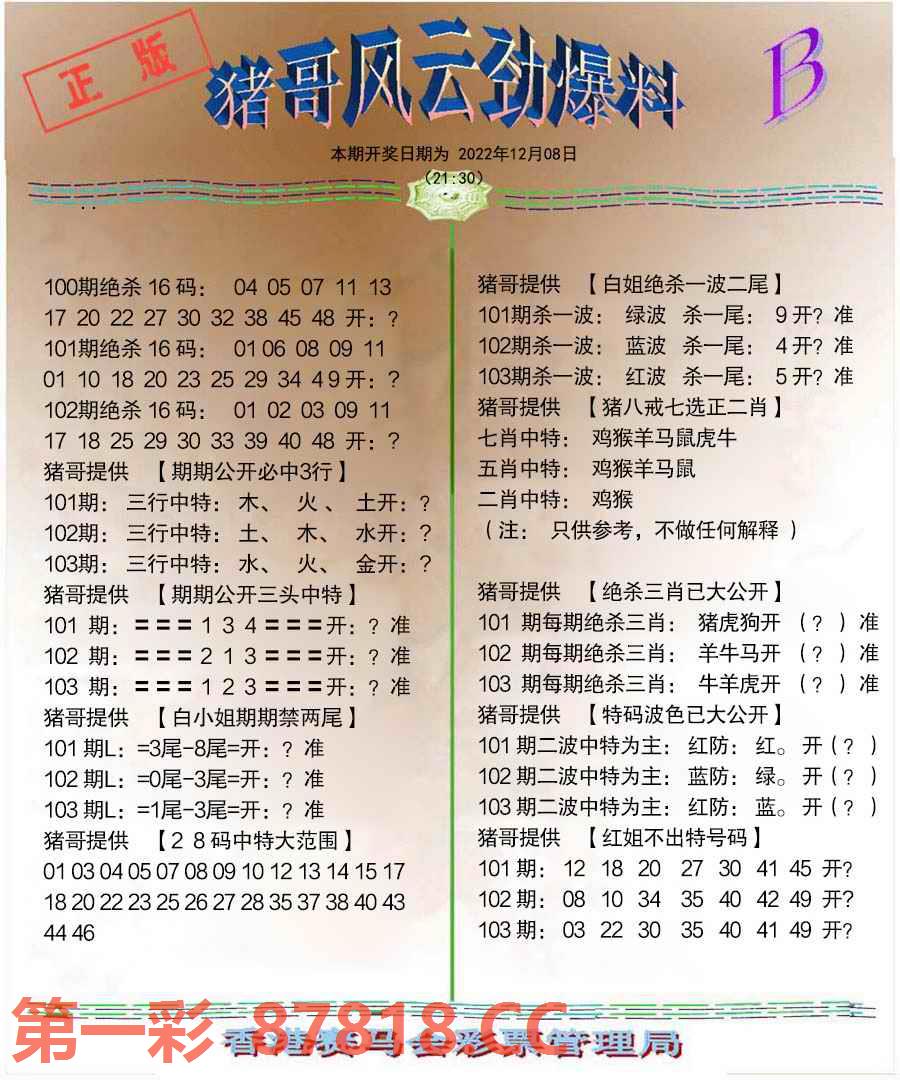 正版
猪哥风云劲爆料
B
本期开奖日期为 2022年12月08日
(21:30)
100期绝杀16码： 04 05 07 11 13
17 20 22 27 30 32 38 45 48 开：？
101期绝杀16码： 01 06 08 09 11
01 10 18 20 23 25 29 34 49开：？
102期绝杀16码： 01 02 03 09 11
17 18 25 29 30 33 39 40 48 开：？
猪哥提供 【期期公开必中3行】
101期： 三行中特：木、 火、 土开：？
102期： 三行中特：土、 木、 水开：？
103期： 三行中特：水、 火、 金开：？
猪哥提供 【期期公开三头中特】
101 期：＝＝＝1 3 4＝＝＝开：？准
102 期：＝＝＝2 1 3＝＝＝开：？准
103 期：＝＝＝1 2 3＝＝＝开：？准
猪哥提供 【白小姐期期禁两尾】
101期L：=3尾-8尾=开：？准
102期L：=0尾-3尾=开：？准
103期L：=1尾-3尾=开：？准
猪哥提供 【２８码中特大范围】
01 03 04 05 07 08 09 10 12 13 14 15 17
18 20 22 23 25 26 27 28 35 37 38 40 43
44 46
猪哥提供 【白姐绝杀一波二尾】
101期杀一波： 绿波 杀一尾： 9开？准
102期杀一波： 蓝波 杀一尾： 4开？准
103期杀一波： 红波 杀一尾： 5开？准
猪哥提供 【猪八戒七选正二肖】
七肖中特： 鸡猴羊马鼠虎牛
五肖中特： 鸡猴羊马鼠
二肖中特： 鸡猴
（注： 只供参考，不做任何解释）
猪哥提供 【绝杀三肖已大公开】
101 期每期绝杀三肖： 猪虎狗开 （？）准
102 期每期绝杀三肖： 羊牛马开 （？）准
103 期每期绝杀三肖： 牛羊虎开 （？）准
猪哥提供 【特码波色已大公开】
101期二波中特为主：红防：红。开(？)
102期二波中特为主：蓝防：绿。开(？)
103期二波中特为主：红防：蓝。开(？)
猪哥提供 【红姐不出特号码】
101期： 12 18 20 27 30 41 45 开?
102期： 08 10 34 35 40 42 49 开?
103期： 03 22 30 35 40 41 49 开?
第一彩 87818.CC
香港赛马会彩票管理局